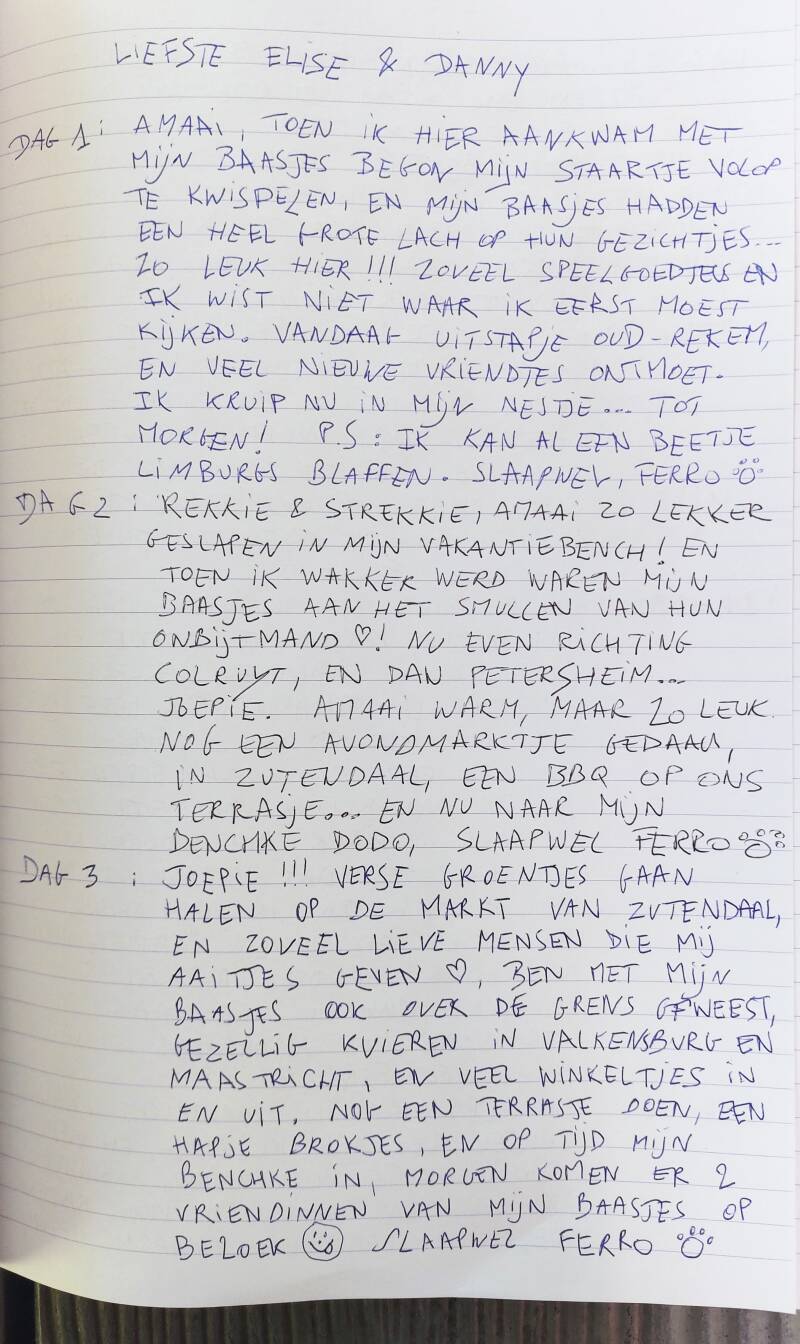 LIEFSTE ELISE & DANNY
DAG 1: AMAAI, TOEN IK HIER AANKWAM MET
MIJN BAASJES BEGON MIJN STAARTJE VOLOP
TE KWISPELEN, EN MIJN BAASJES HADDEN
EEN HEEL GROTE LACH OP HUN GEZICHTJES...
ZO LEUK HIER!!! ZOVEEL SPEELGOEDTJES EN
IK WIST NIET WAAR IK EERST MOEST
KIJKEN. VANDAAG UITSTAPJE OUD-REKEM,
EN VEEL NIEUWE VRIENDTJES ONTMOET.
IK KRUIP NU IN MIJN NESTJE... TOT
MORGEN! P.S: IK KAN AL EEN BEETJE
LIMBURGS BLAFFEN. SLAAPWEL, FERRO
DAG 2: REKKIE & STREKKIE, AMAAI ZO LEKKER
GESLAPEN IN MIJN VAKANTIEBENCH! EN
TOEN IK WAKKER WERD WAREN MIJN
BAASJES AAN HET SMULLEN VAN HUN
ONBIJTMAND ♡! NU EVEN RICHTING
COLRUYT, EN DAN PETERSHEIM...
JOEPIE. AMAAI WARM, MAAR ZO LEUK.
NOG EEN AVONDMARKTJE GEDAAN,
IN ZUTENDAAL, EEN BBQ OP ONS
TERRASJE... EN NU NAAR MIJN
BENCHKE DODO, SLAAPWEL FERRO
DAG 3: JOEPIE!!! VERSE GROENTJES GAAN
HALEN OP DE MARKT VAN ZUTENDAAL,
EN ZOVEEL LIEVE MENSEN DIE MIJ
AAITJES GEVEN ♡, BEN MET MIJN
BAASJES OOK OVER DE GRENS GEWEEST,
GEZELLIG KUIEREN IN VALKENSBURG EN
MAASTRICHT, EN VEEL WINKELTJES IN
EN UIT. NOG EEN TERRASJE DOEN, EEN
HAPJE BROKJES, EN OP TIJD MIJN
BENCHKE IN, MORGEN KOMEN ER 2
VRIENDINNEN VAN MIJN BAASJES OP
BEZOEK ☺ SLAAPWEL FERRO